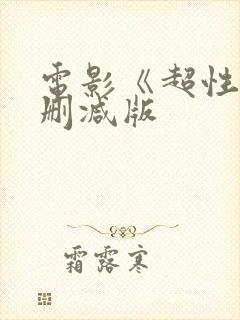 電影《超性
刪减版
霜露寒